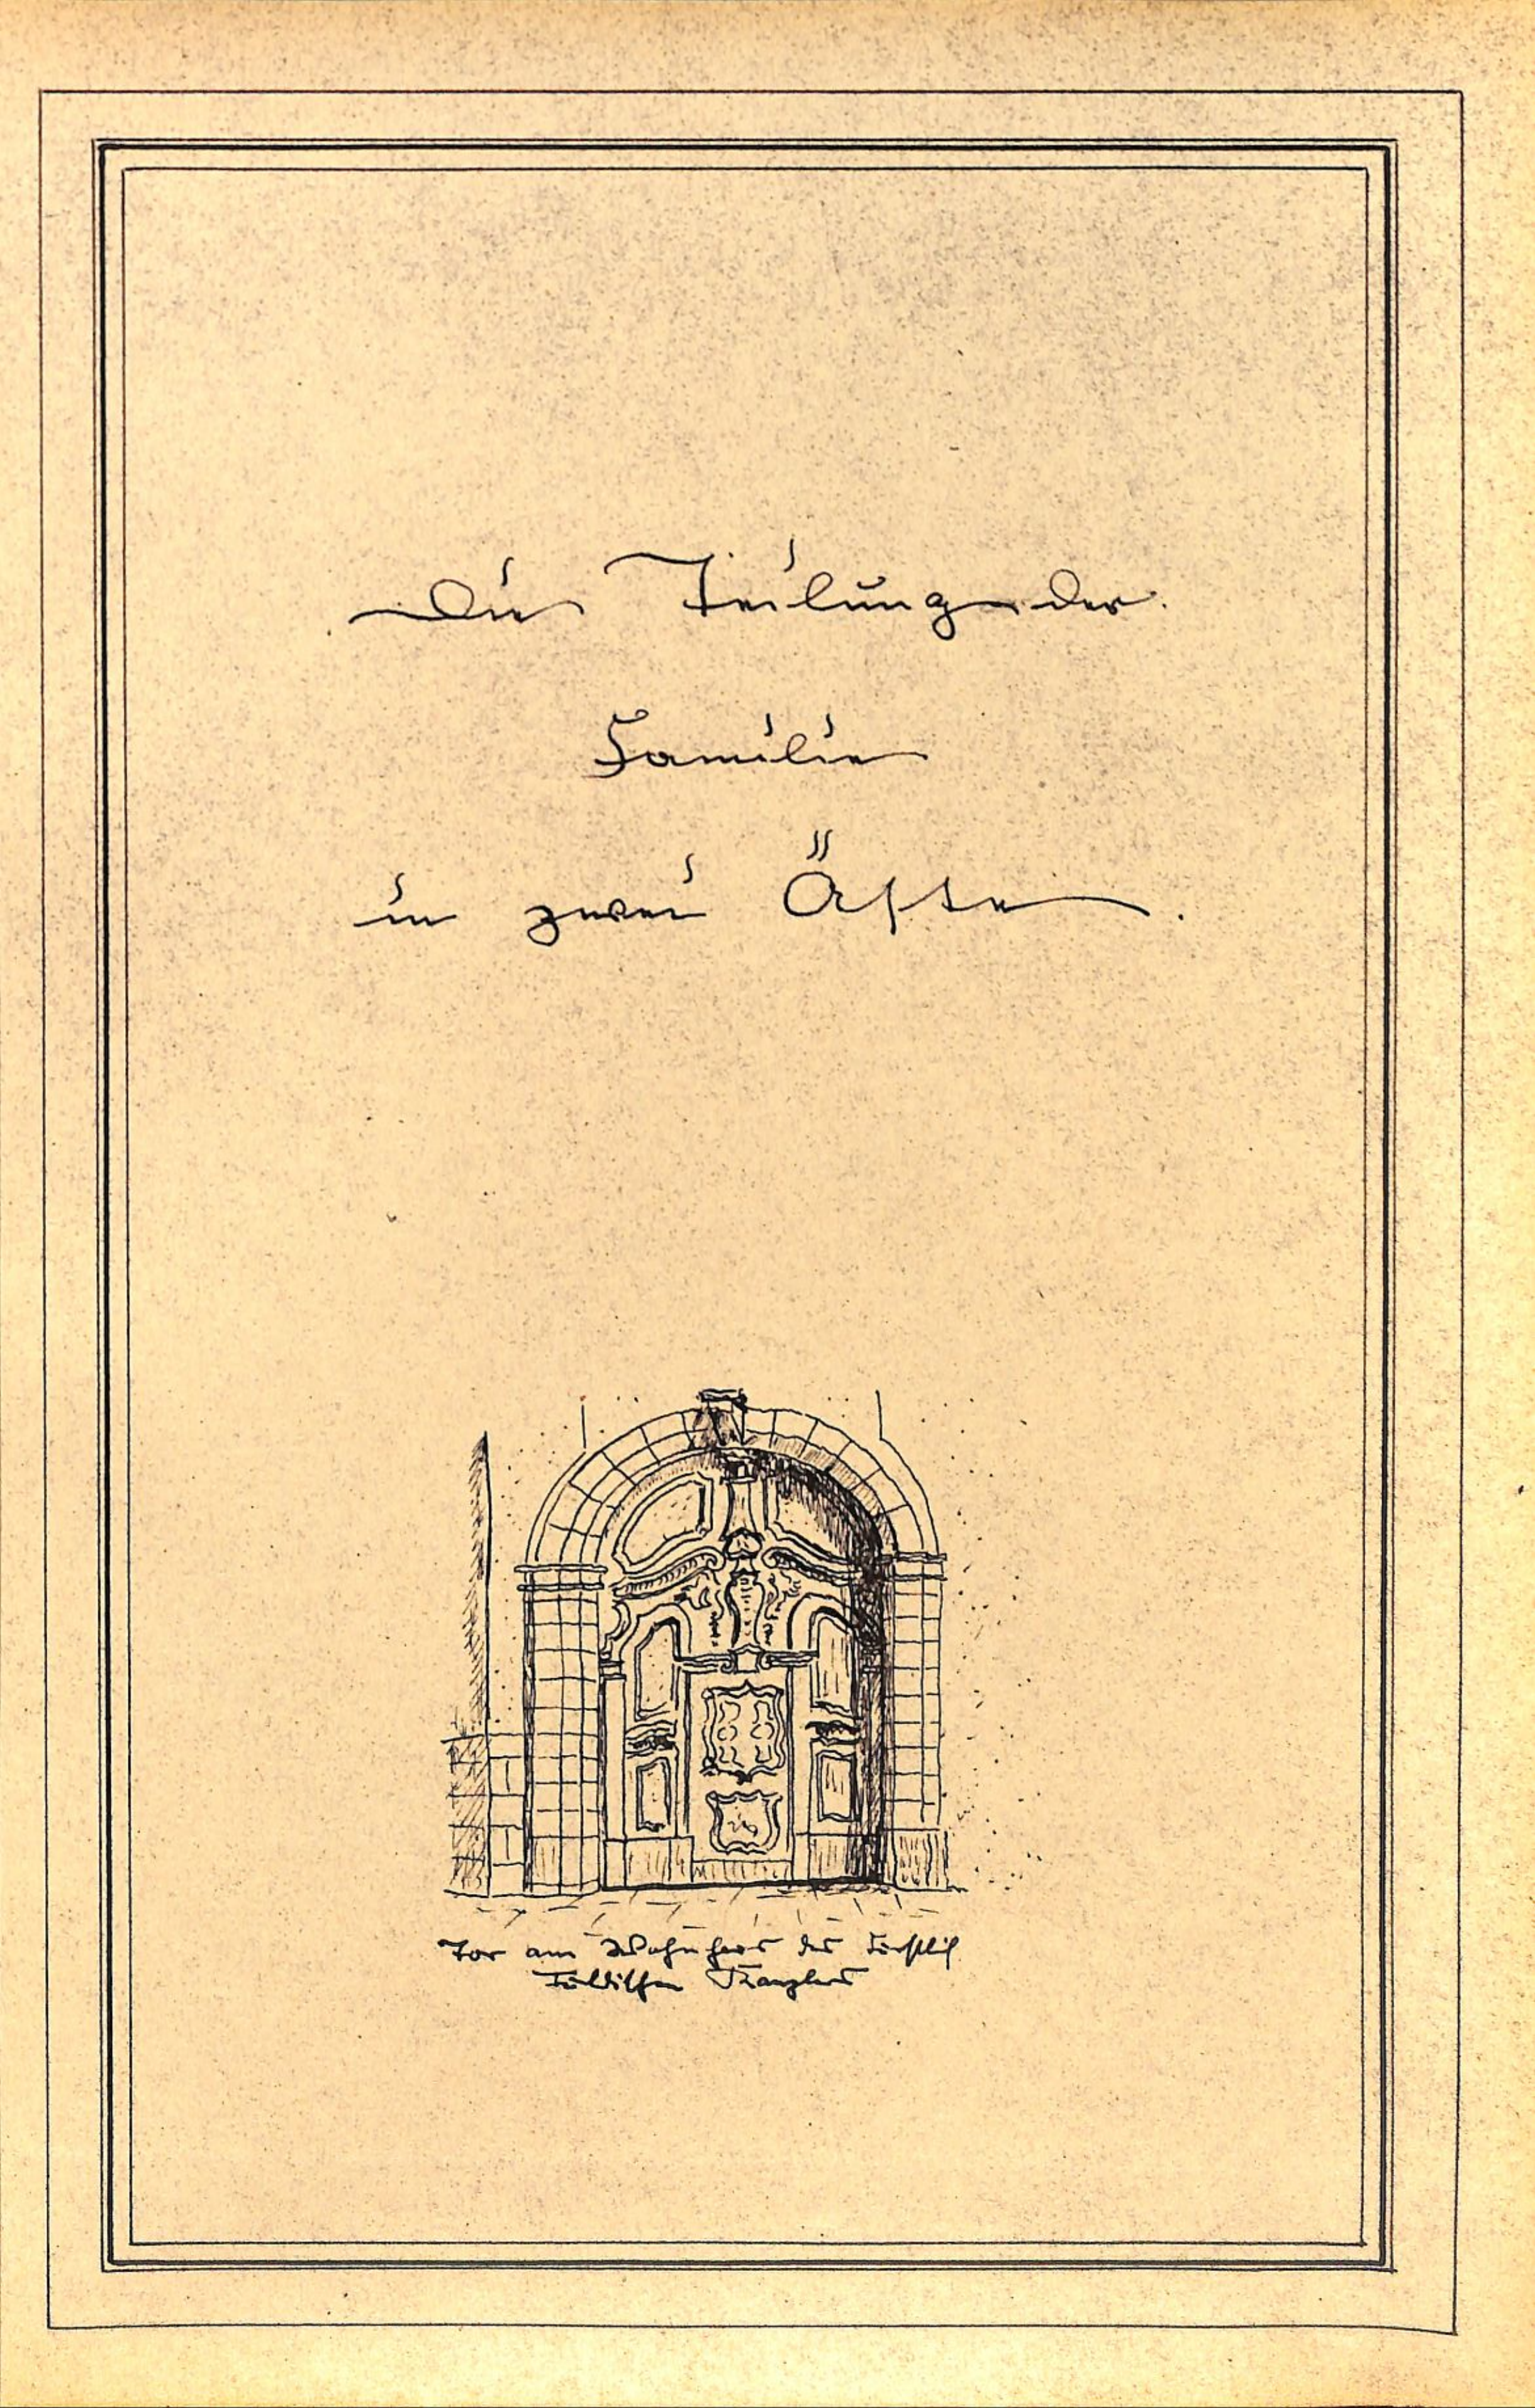 Die Teilung der
Familie
in zwei Äste.
Tor am Wohnhaus des Fürstlich
Fuldischen Kanzlers